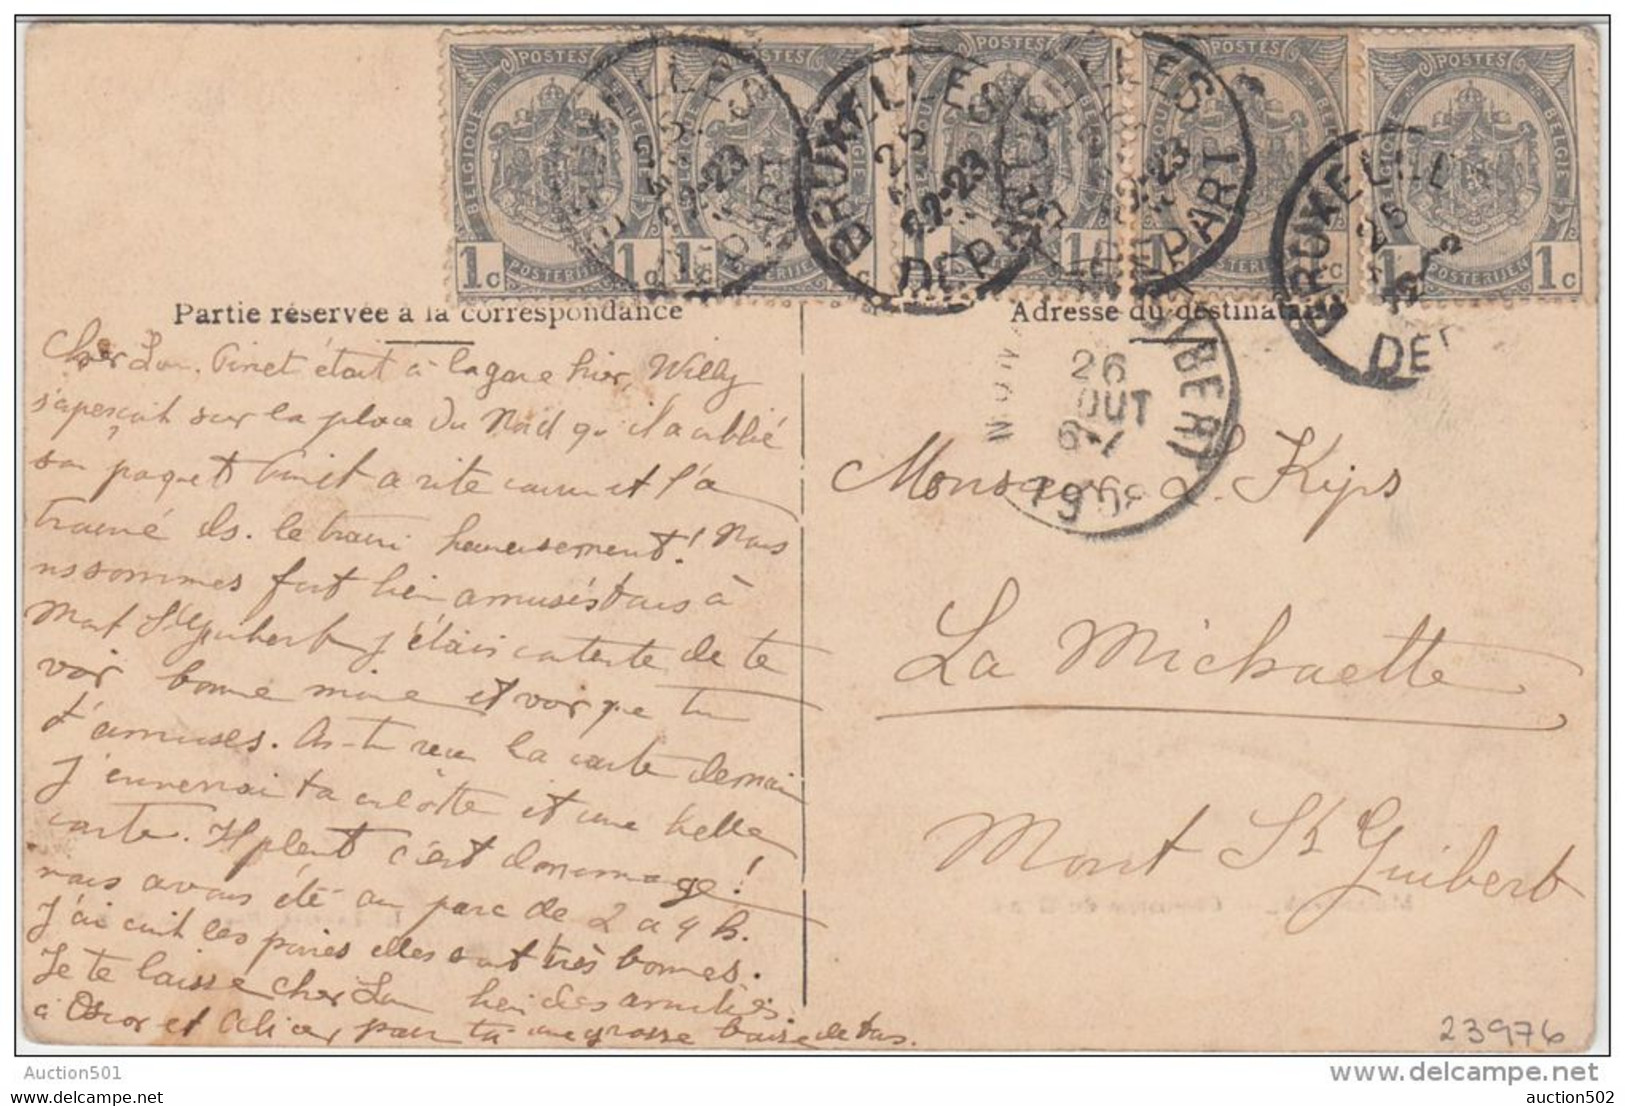 POSTES POSTES POSTES POSTES POSTES
BELGIQUE BELGIE
1c 1c 1c 1c 1c
POSTERIJEN
BRUXELLES
25
22-23
DEPART
Partie réservée à la correspondance
Adresse du destinataire
MONT ST GUIBERT
26
AOUT
6-7
1908
Cher Lou. Pinet était à la gare hier, Willy
s'aperçoit sur la place du Nord qu'il a oublié
son paquet Pinet a vite couru et l'a
trouvé ds. le train heureusement! Nous
ns sommes fort bien amusés tous à
Mont St Guibert j'étais contente de te
voir bonne mine et voir que tu
t'amuses. As-tu reçu la carte demain
j'enverrai ta culotte et une belle
carte. Il pleut c'est dommage!
nous avons été au parc de 2 a 4 h.
J'ai cuit les poires elles sont très bonnes.
Je te laisse cher Lou bien des amitiés
à Oscar et Olivier pour toi une grosse baise de tous.
Monsieur L. Kips
La Michaette
Mont St Guibert
23976
Auction501
www.delcampe.net
auction502